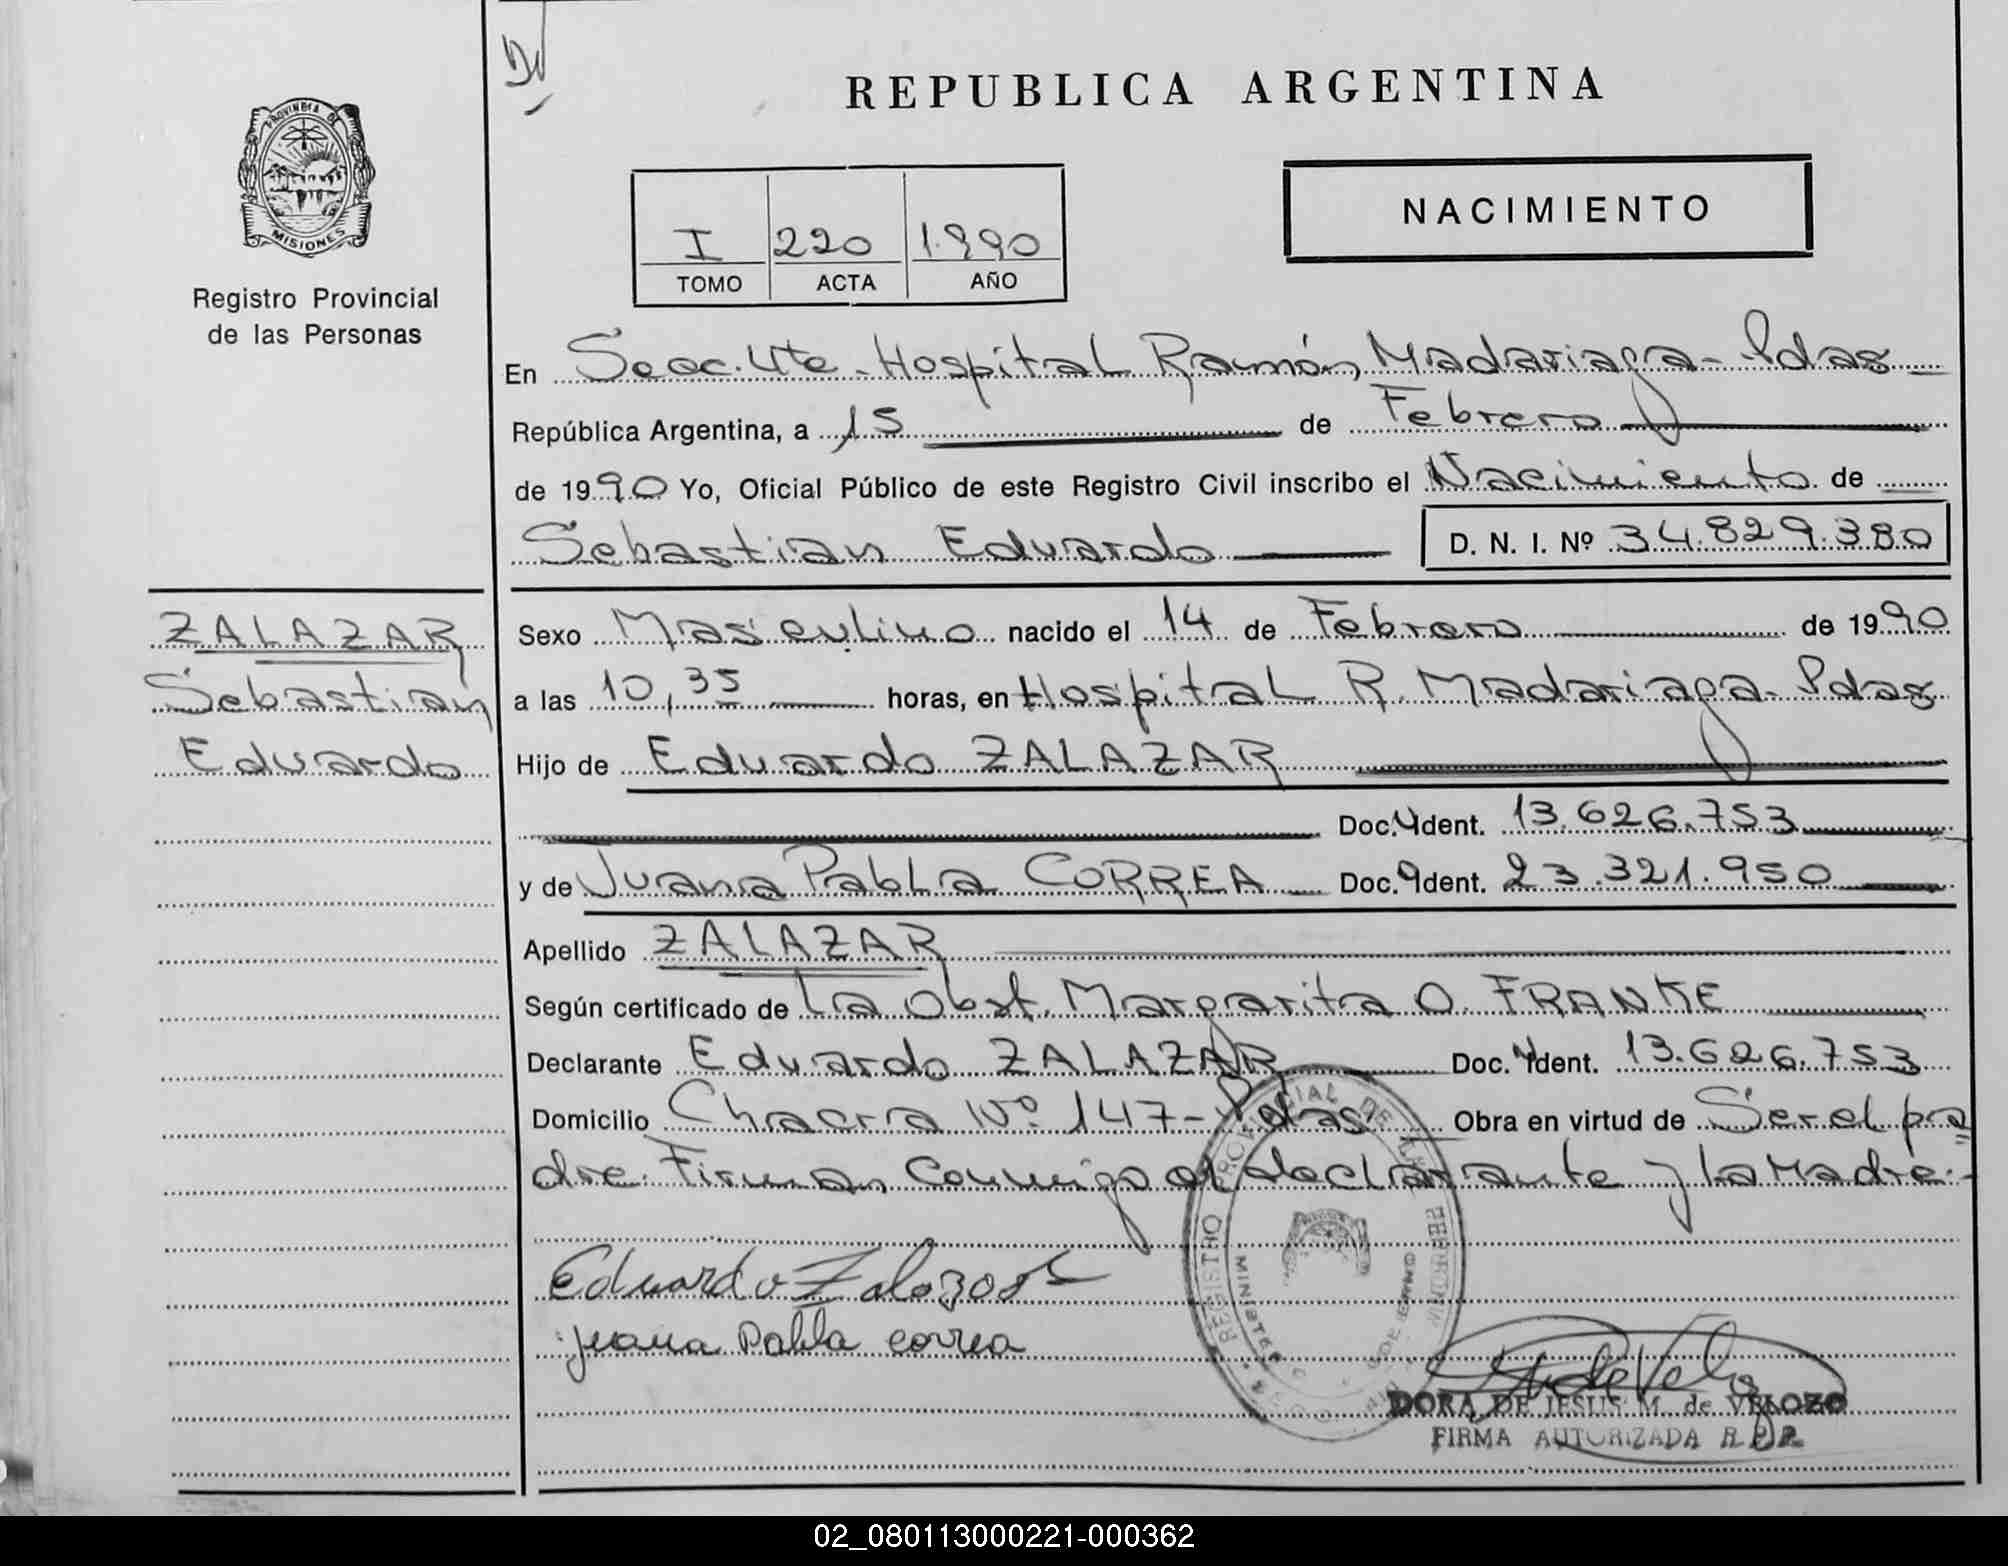 DV
REPUBLICA ARGENTINA
PROVINCIA DE
MISIONES
Registro Provincial
de las Personas
NACIMIENTO
I 220 1.990
TOMO ACTA AÑO
En Secc. 4ta - Hospital Ramón Madariaga - Pdas
República Argentina, a 15 de Febrero
de 1990 Yo, Oficial Público de este Registro Civil inscribo el Nacimiento de
Sebastian Eduardo D. N. I. Nº 34.829.380
ZALAZAR
Sebastian
Eduardo
Sexo Masculino nacido el 14 de Febrero de 1990
a las 10,35 horas, en Hospital R. Madariaga - Pdas
Hijo de Eduardo ZALAZAR
Doc. Ident. 13.626.753
y de Juana Pabla CORREA Doc. Ident. 23.321.950
Apellido ZALAZAR
Según certificado de La Obst. Margarita O. FRANKE
Declarante Eduardo ZALAZAR Doc. Ident. 13.626.753
Domicilio Chacra Nº 147 - Pdas Obra en virtud de Ser el pa
dre. Firman Conmigo el declarante y la Madre.-
REGISTRO PROVINCIAL DE LAS PERSONAS
Eduardo Zalazar
Juana Pabla Correa
DORA DE JESUS M. de VELOZO
FIRMA AUTORIZADA R.P.P.
02_080113000221-000362